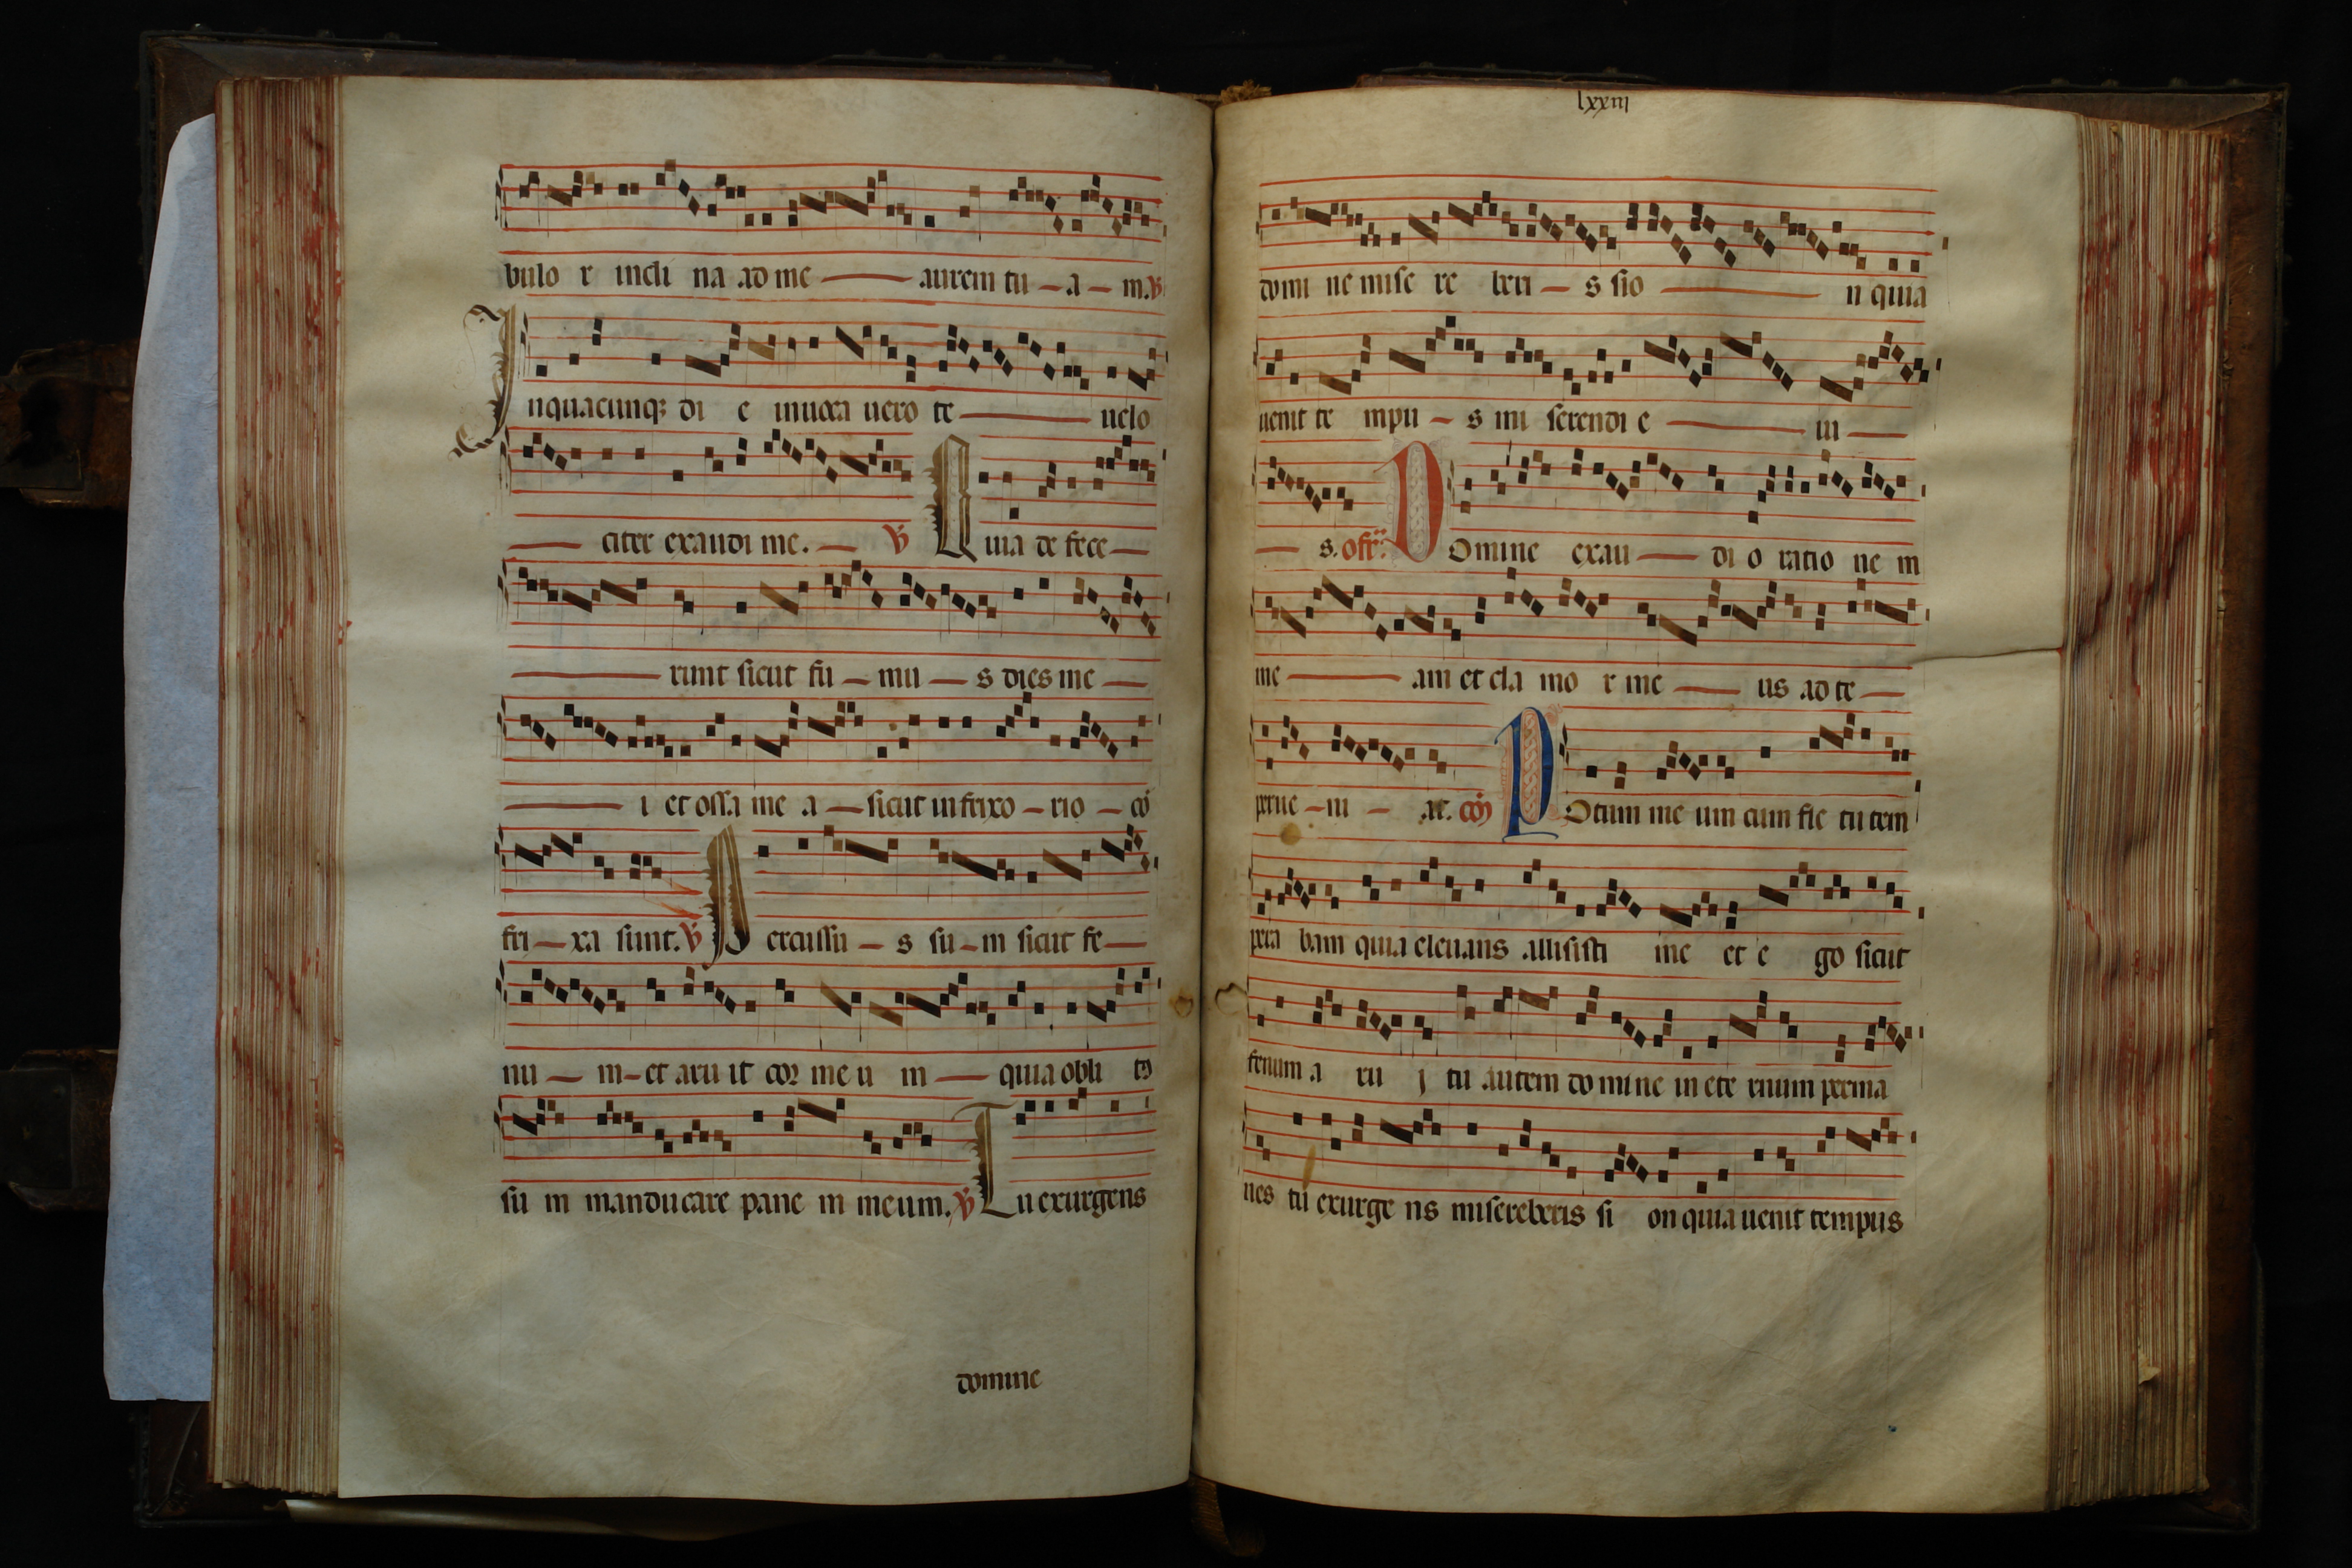 bulo r incli na ad me aurem tu a m. ℣
Inquacunqꝫ di e inuoca uero te uelo
citer exaudi me. ℣ Quia de fece
runt sicut fu mu s dies me
i et ossa me a sicut in frixo rio cō
fri xa sunt. ℣ Percussu s su m sicut fe
nu m et aru it cor me u m quia obli tꝰ
su m manducare pane m meum. ℣ Tu exurgens
domine
lxxiii
domi ne mise re beri s sio n quia
uenit te mpu s mi serendi e iu
s. ofr̄. Domine exau di o ratio ne m
me am et cla mo r me us ad te
perue ni at. cōȷ Potum me um cum fle tu tem
pera bam quia eleuans allisisti me et e go sicut
fenum a ru j tu autem domine in ete rnum perma
nes tu exurge ns misereberis si on quia uenit tempus